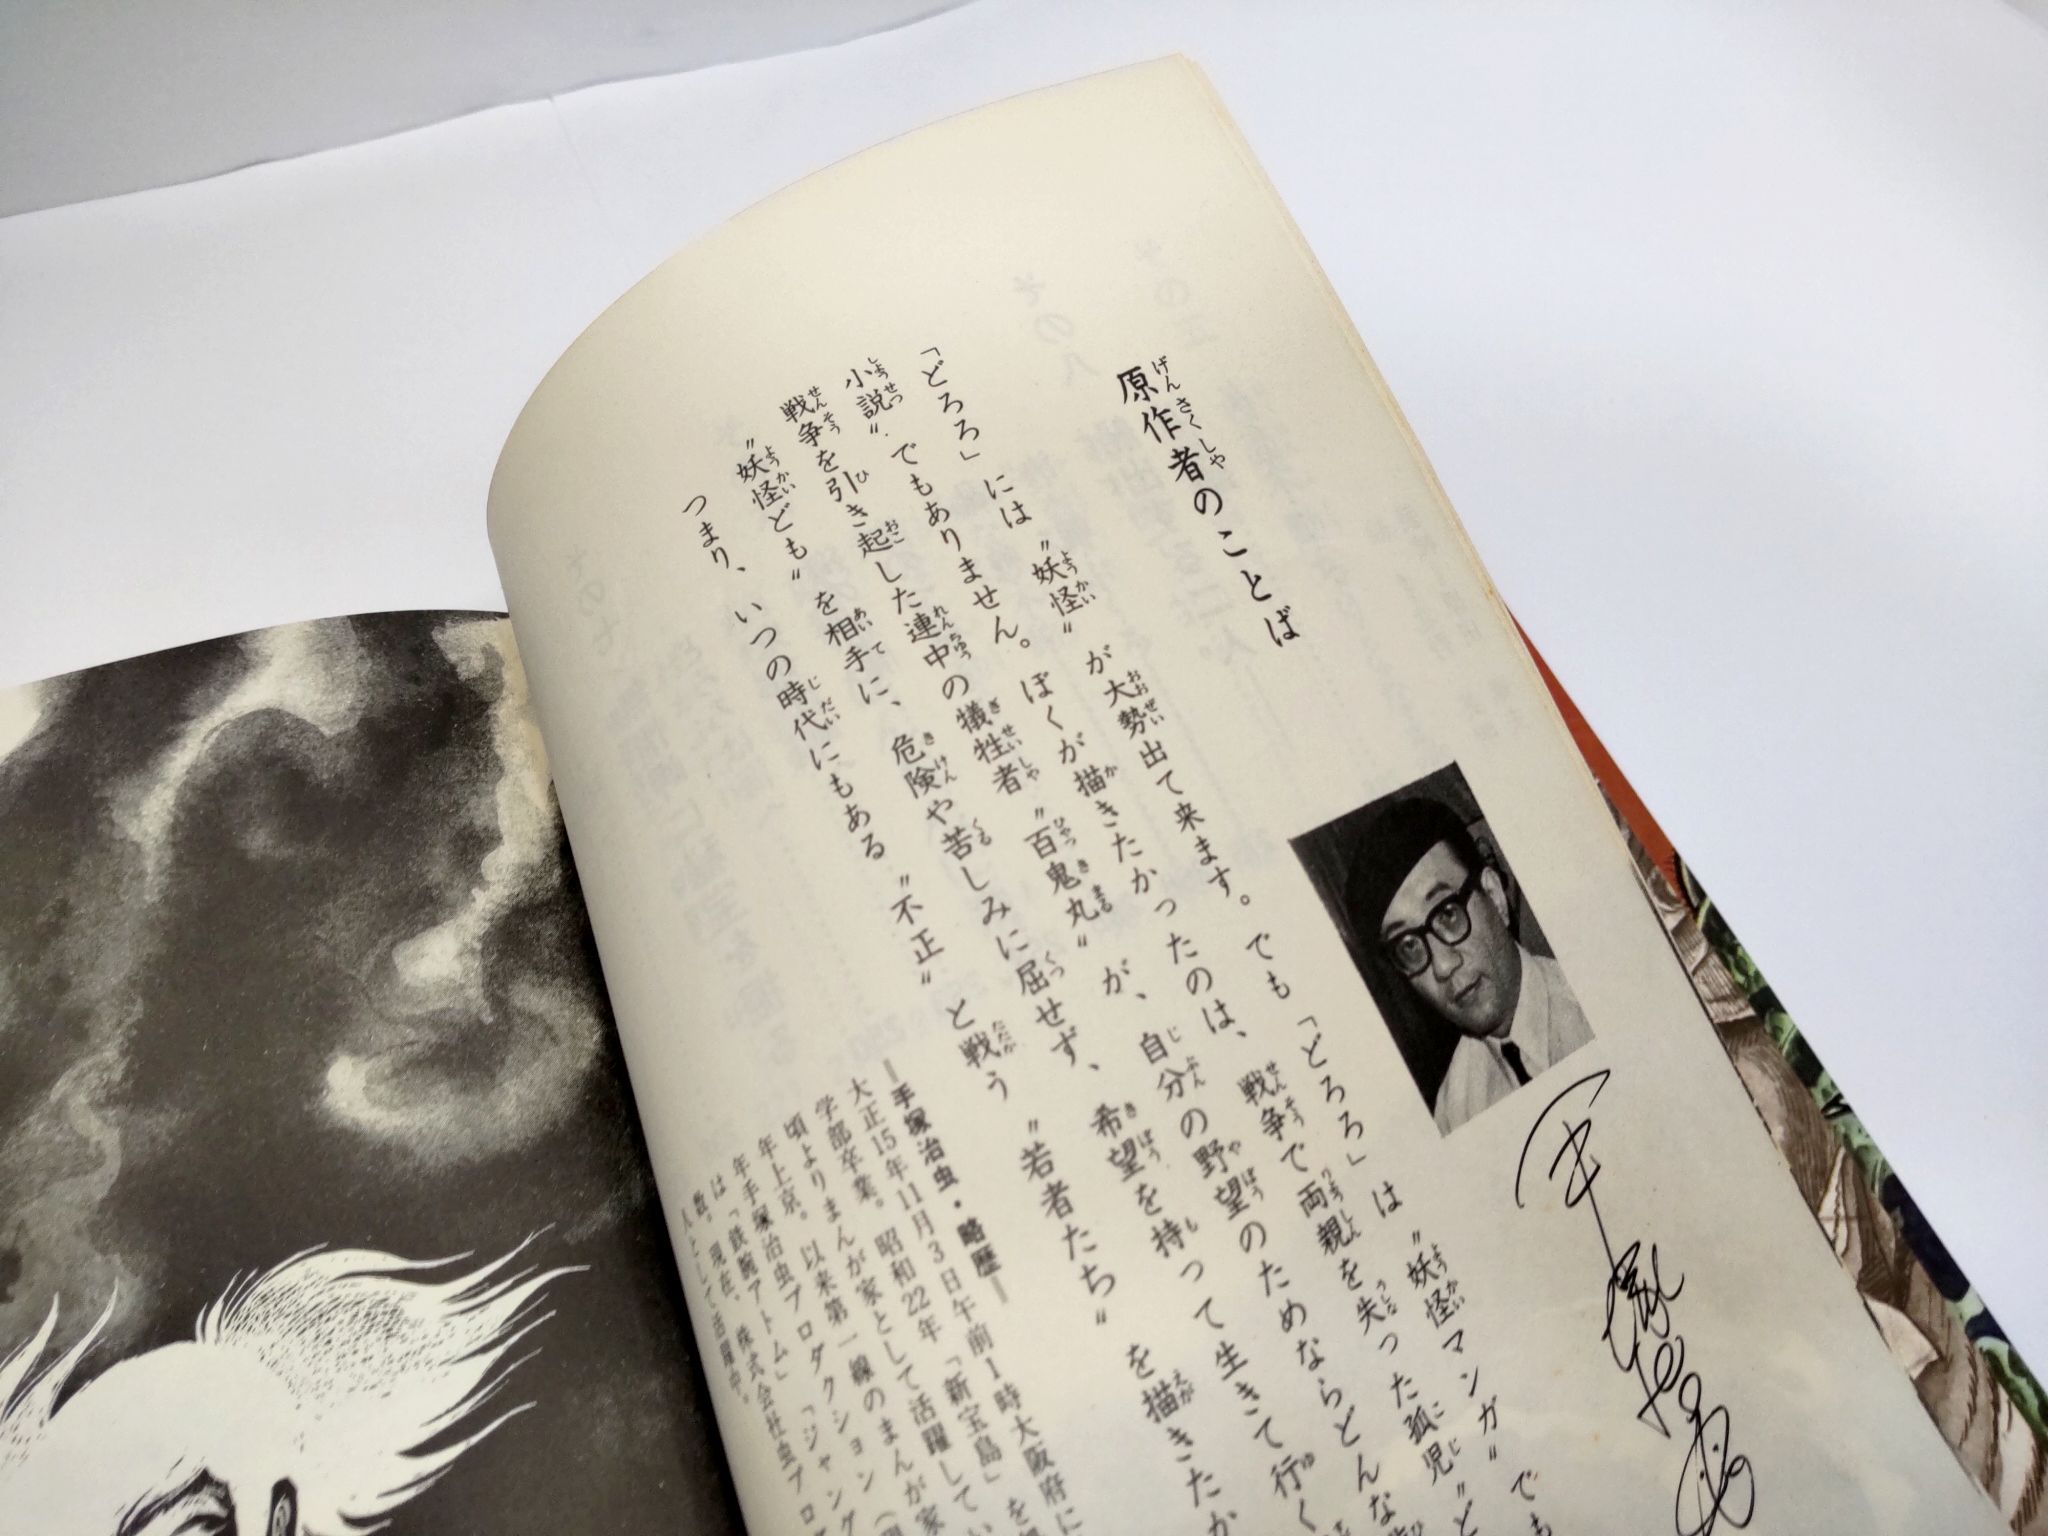 原作者のことば
「どろろ」には〝妖怪〟が大勢出て来ます。でも「どろろ」は〝妖怪マンガ〟でも
小説〟でもありません。ぼくが描きたかったのは、戦争で両親を失った孤児〝ど
戦争を引き起した連中の犠牲者〝百鬼丸〟が、自分の野望のためならどんな
〝妖怪ども〟を相手に、危険や苦しみに屈せず、希望を持って生きて行く
つまり、いつの時代にもある〝不正〟と戦う〝若者たち〟を描きたか
―手塚治虫・略歴―
大正15年11月3日午前1時大阪府に
学部卒業。昭和22年「新宝島」を
頃よりまんが家として活躍してい
年上京。以来第一線のまんが家
年手塚治虫プロダクション（
は「鉄腕アトム」「ジャング
数。現在、株式会社虫プロ
人として活躍中。